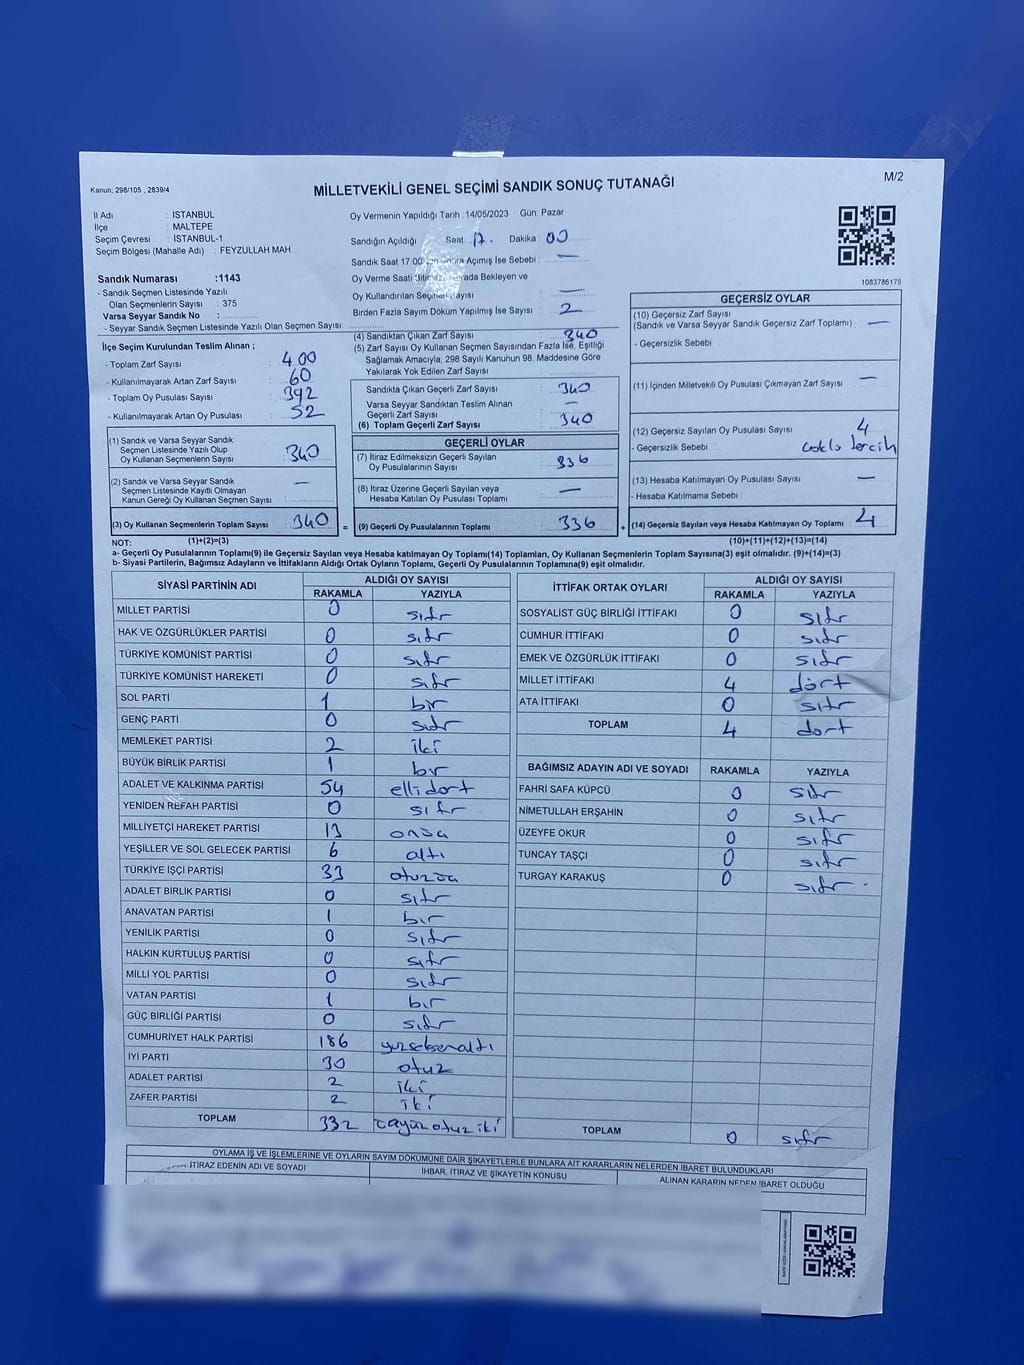 M/2
Kanun; 298/105 , 2839/4
MİLLETVEKİLİ GENEL SEÇİMİ SANDIK SONUÇ TUTANAĞI
İl Adı : İSTANBUL
İlçe : MALTEPE
Seçim Çevresi : İSTANBUL-1
Seçim Bölgesi (Mahalle Adı) : FEYZULLAH MAH
Sandık Numarası :1143
- Sandık Seçmen Listesinde Yazılı
Olan Seçmenlerin Sayısı : 375
Varsa Seyyar Sandık No :
- Seyyar Sandık Seçmen Listesinde Yazılı Olan Seçmen Sayısı:
İlçe Seçim Kurulundan Teslim Alınan ;
- Toplam Zarf Sayısı : 400
- Kullanılmayarak Artan Zarf Sayısı : 60
- Toplam Oy Pusulası Sayısı : 392
- Kullanılmayarak Artan Oy Pusulası : 52
(1) Sandık ve Varsa Seyyar Sandık
Seçmen Listesinde Yazılı Olup
Oy Kullanan Seçmenlerin Sayısı : 340
(2) Sandık ve Varsa Seyyar Sandık
Seçmen Listesinde Kayıtlı Olmayan
Kanun Gereği Oy Kullanan Seçmen Sayısı : —
(3) Oy Kullanan Seçmenlerin Toplam Sayısı : 340
Oy Vermenin Yapıldığı Tarih :14/05/2023 Gün: Pazar
Sandığın Açıldığı Saat : 17. Dakika : 00
Sandık Saat 17:00 Açımış İse Sebebi : —
Oy Verme Saati Bekleyen ve
Oy Kullandırılan Seçmen Sayısı : —
Birden Fazla Sayım Döküm Yapılmış İse Sayısı : 2
(4) Sandıktan Çıkan Zarf Sayısı : 340
(5) Zarf Sayısı Oy Kullanan Seçmen Sayısından Fazla İse, Eşitliği
Sağlamak Amacıyla; 298 Sayılı Kanunun 98. Maddesine Göre
Yakılarak Yok Edilen Zarf Sayısı :
Sandıkta Çıkan Geçerli Zarf Sayısı : 340
Varsa Seyyar Sandıktan Teslim Alınan
Geçerli Zarf Sayısı : —
(6) Toplam Geçerli Zarf Sayısı : 340
GEÇERLİ OYLAR
(7) İtiraz Edilmeksizin Geçerli Sayılan
Oy Pusulalarının Sayısı : 336
(8) İtiraz Üzerine Geçerli Sayılan veya
Hesaba Katılan Oy Pusulası Toplamı : —
= (9) Geçerli Oy Pusulalarının Toplamı : 336
1083786178
GEÇERSİZ OYLAR
(10) Geçersiz Zarf Sayısı
(Sandık ve Varsa Seyyar Sandık Geçersiz Zarf Toplamı) : —
- Geçersizlik Sebebi :
(11) İçinden Milletvekili Oy Pusulası Çıkmayan Zarf Sayısı : —
(12) Geçersiz Sayılan Oy Pusulası Sayısı : 4
- Geçersizlik Sebebi : tercih
(13) Hesaba Katılmayan Oy Pusulası Sayısı : —
- Hesaba Katılmama Sebebi :
+ (14) Geçersiz Sayılan veya Hesaba Katılmayan Oy Toplamı : 4
NOT: (1)+(2)=(3) (10)+(11)+(12)+(13)=(14)
a- Geçerli Oy Pusulalarının Toplamı(9) ile Geçersiz Sayılan veya Hesaba katılmayan Oy Toplamı(14) Toplamları, Oy Kullanan Seçmenlerin Toplam Sayısına(3) eşit olmalıdır. (9)+(14)=(3)
b- Siyasi Partilerin, Bağımsız Adayların ve İttifakların Aldığı Ortak Oyların Toplamı, Geçerli Oy Pusulalarının Toplamına(9) eşit olmalıdır.
SİYASİ PARTİNİN ADI ALDIĞI OY SAYISI
RAKAMLA YAZIYLA
MİLLET PARTİSİ 0 sıfır
HAK VE ÖZGÜRLÜKLER PARTİSİ 0 sıfır
TÜRKİYE KOMÜNİST PARTİSİ 0 sıfır
TÜRKİYE KOMÜNİST HAREKETİ 0 sıfır
SOL PARTİ 1 bir
GENÇ PARTİ 0 sıfır
MEMLEKET PARTİSİ 2 iki
BÜYÜK BİRLİK PARTİSİ 1 bır
ADALET VE KALKINMA PARTİSİ 54 ellidört
YENİDEN REFAH PARTİSİ 0 sıfır
MİLLİYETÇİ HAREKET PARTİSİ 13 onüç
YEŞİLLER VE SOL GELECEK PARTİSİ 6 altı
TÜRKİYE İŞÇİ PARTİSİ 33 otuzüç
ADALET BİRLİK PARTİSİ 0 sıfır
ANAVATAN PARTİSİ 1 bır
YENİLİK PARTİSİ 0 sıfır
HALKIN KURTULUŞ PARTİSİ 0 sıfır
MİLLİ YOL PARTİSİ 0 sıfır
VATAN PARTİSİ 1 bır
GÜÇ BİRLİĞİ PARTİSİ 0 sıfır
CUMHURİYET HALK PARTİSİ 186 yüzseksenaltı
İYİ PARTİ 30 otuz
ADALET PARTİSİ 2 iki
ZAFER PARTİSİ 2 iki
TOPLAM 332 üçyüzotuziki
İTTİFAK ORTAK OYLARI ALDIĞI OY SAYISI
RAKAMLA YAZIYLA
SOSYALİST GÜÇ BİRLİĞİ İTTİFAKI 0 sıfır
CUMHUR İTTİFAKI 0 sıfır
EMEK VE ÖZGÜRLÜK İTTİFAKI 0 sıfır
MİLLET İTTİFAKI 4 dört
ATA İTTİFAKI 0 sıfır
TOPLAM 4 dört
BAĞIMSIZ ADAYIN ADI VE SOYADI RAKAMLA YAZIYLA
FAHRİ SAFA KÜPCÜ 0 sıfır
NİMETULLAH ERŞAHİN 0 sıfır
ÜZEYFE OKUR 0 sıfır
TUNCAY TAŞÇI 0 sıfır
TURGAY KARAKUŞ 0 sıfır
TOPLAM 0 sıfır
OYLAMA İŞ VE İŞLEMLERİNE VE OYLARIN SAYIM DÖKÜMÜNE DAİR ŞİKAYETLERLE BUNLARA AİT KARARLARIN NELERDEN İBARET BULUNDUKLARI
İTİRAZ EDENİN ADI VE SOYADI İHBAR, İTİRAZ VE ŞİKAYETİN KONUSU ALINAN KARARIN NEDEN İBARET OLDUĞU